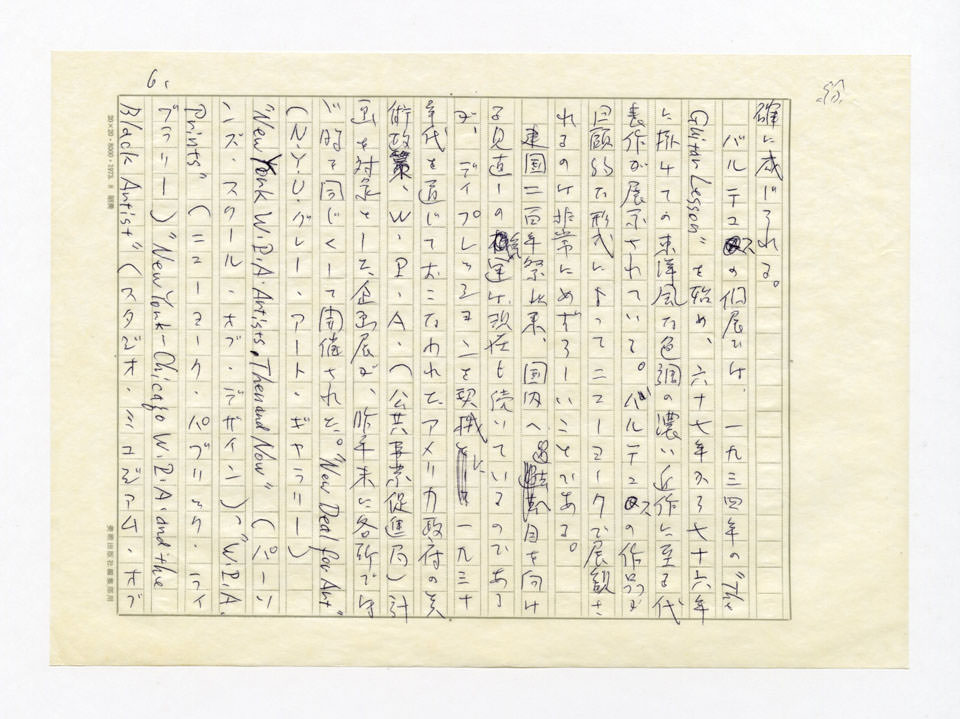 6.
確に感じられる。
バルテュスの個展では、一九三四年の"The
Guitar Lesson"を始め、六十七年から七十六年
に掛けての東洋風な色調の濃い近作に至る代
表作が展示されている。バルテュスの作品が
回顧的な形式によってニューヨークで展観さ
れるのは非常にめずらしいことである。
建国二百年祭以来、国内へ目を向け
る見直しの機運は、現在も続いているのであり
、ディプレッションを契機に一九三十
年代を通じておこなわれたアメリカ政府の芸
術政策、W.P.A.(公共事業促進局)計
画を対象とした企画展が、昨年末に各所で時
を同じくして開催された。"New Deal for Art"
(N.Y.U.グレー・アート・ギャラリー)
"New York W.P.A. Artists, Then and Now"(パーソ
ンズ・スクール・オブ・デザイン)"W.P.A.
Prints"(ニューヨーク・パブリック・ライ
ブラリー)"New York-Chicago W.P.A. and the
Black Artist"(スタジオ・ミュージアム・オブ
20×20